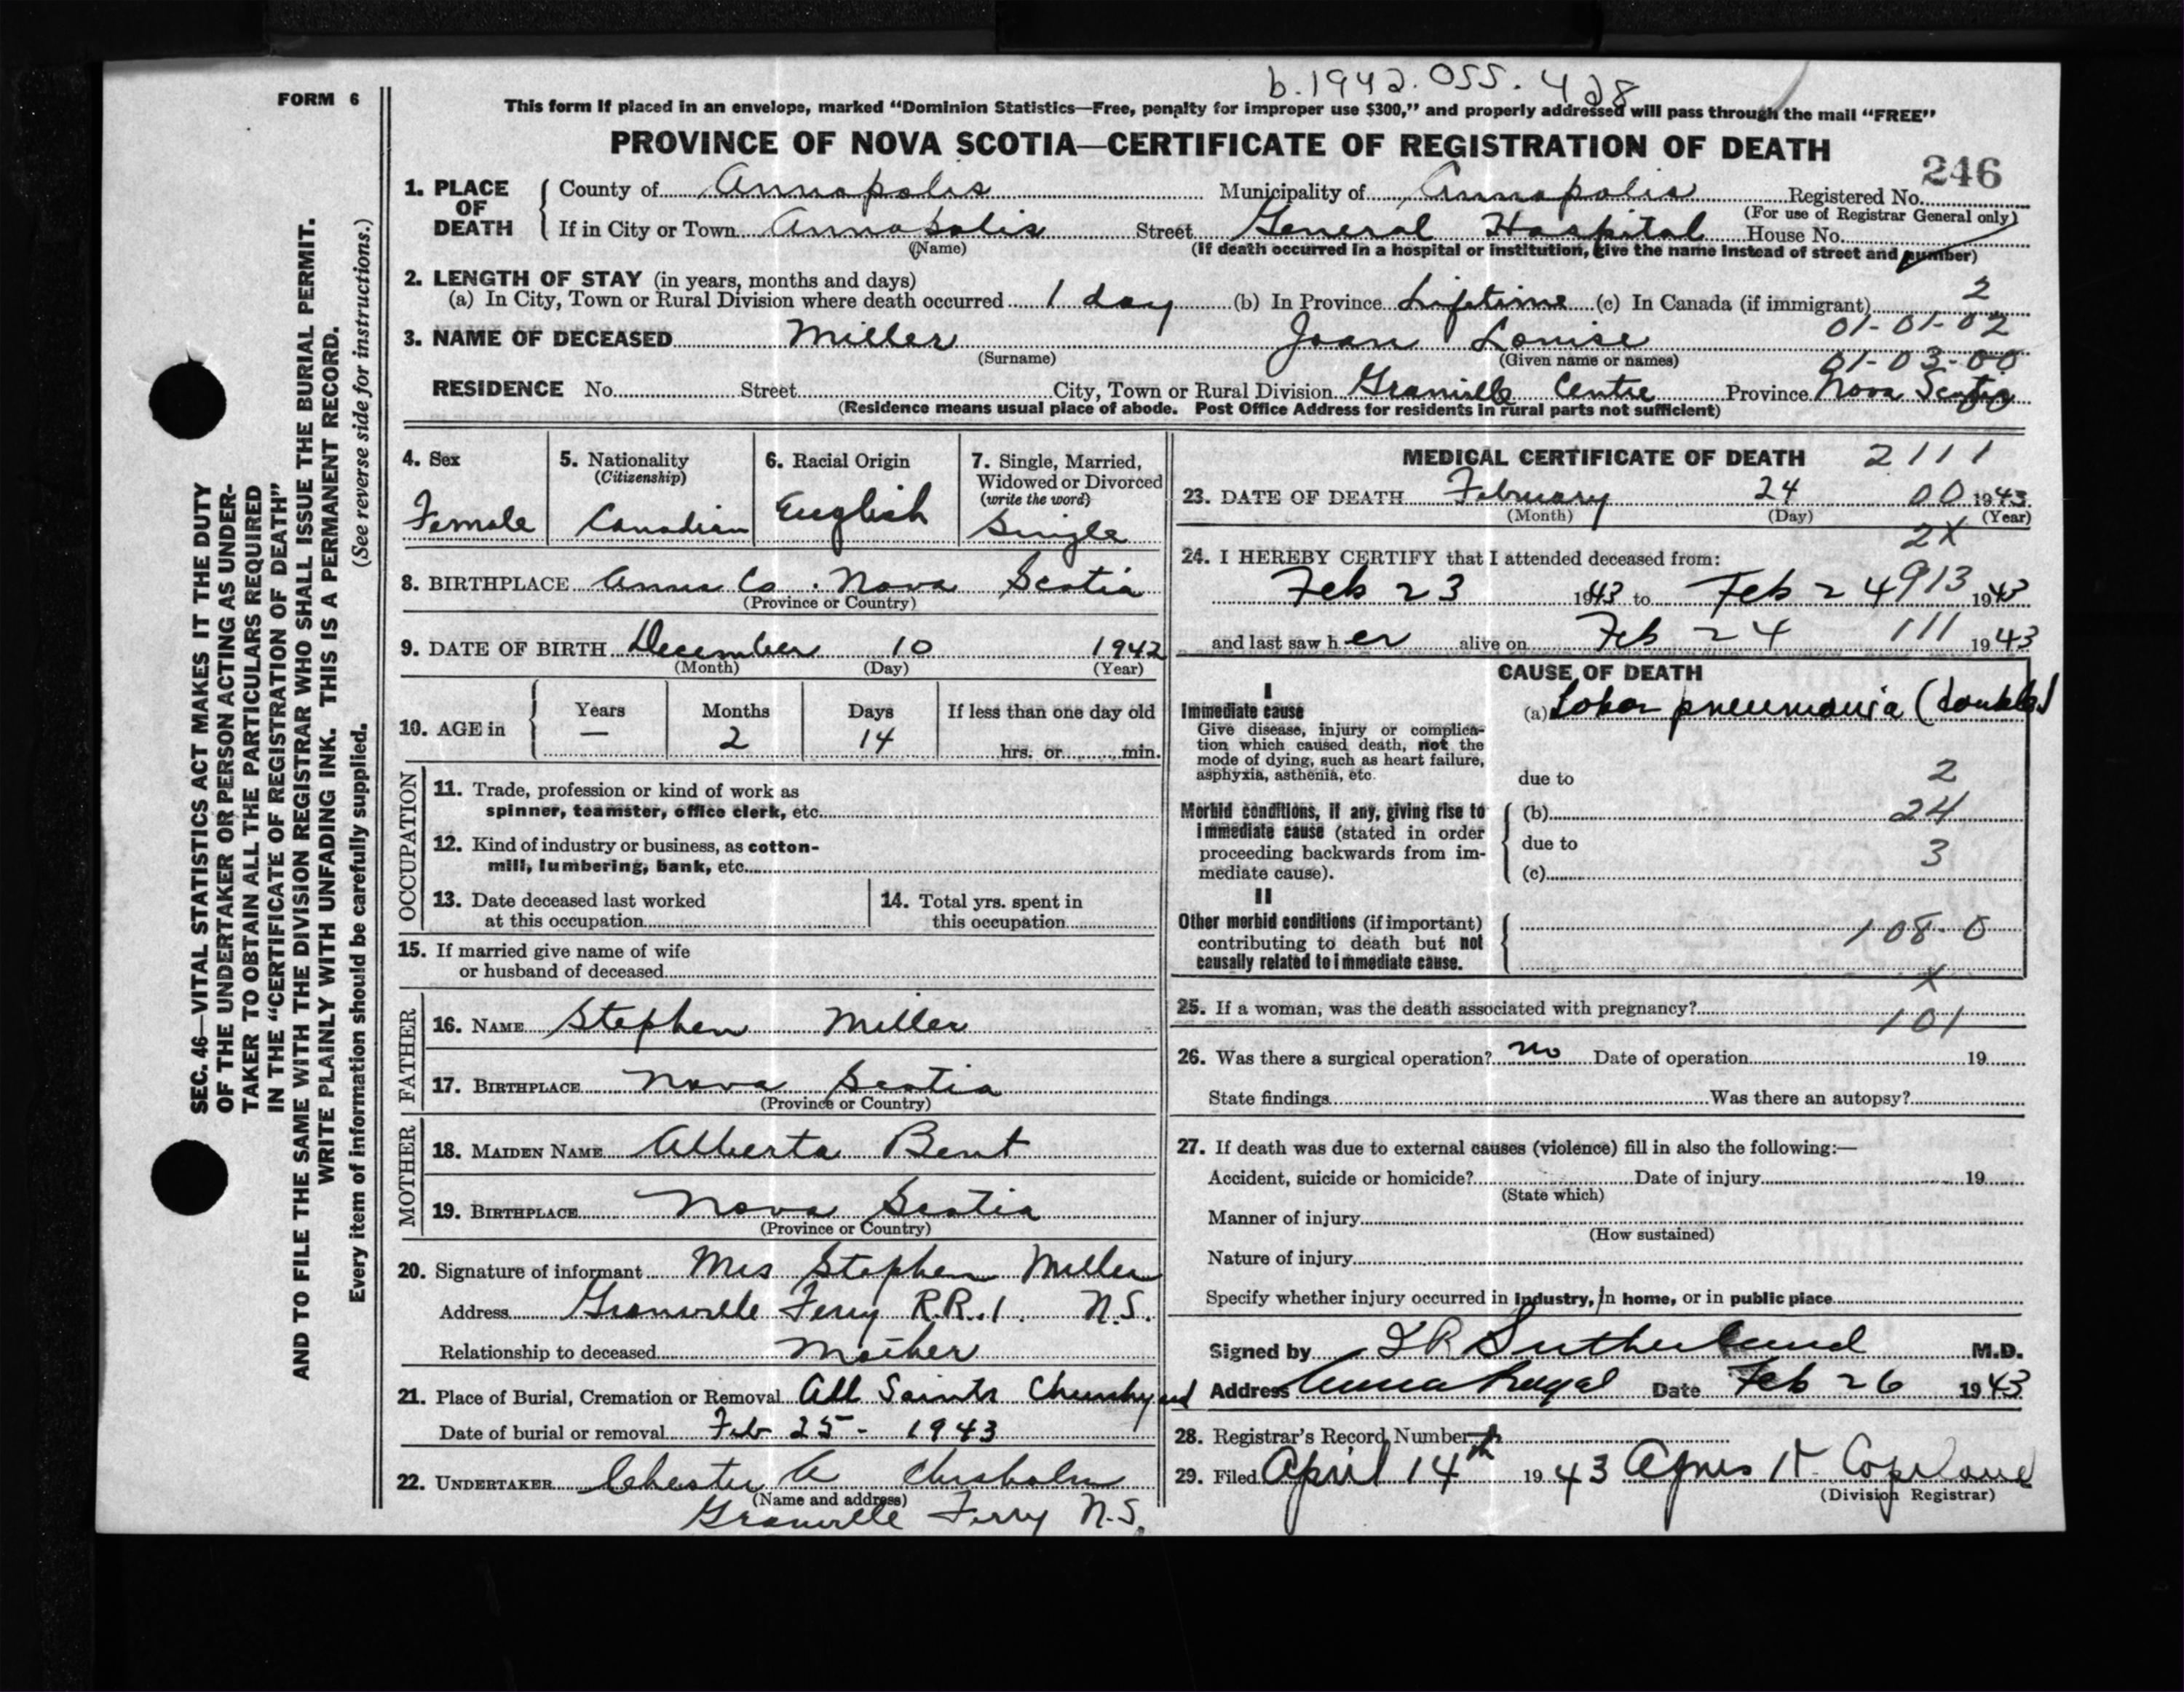 b.1942.055.428
FORM 6
This form if placed in an envelope, marked “Dominion Statistics—Free, penalty for improper use $300,” and properly addressed will pass through the mail “FREE”
PROVINCE OF NOVA SCOTIA—CERTIFICATE OF REGISTRATION OF DEATH
246
1. PLACE OF DEATH County of Annapolis Municipality of Annapolis Registered No.
(For use of Registrar General only)
If in City or Town Annapolis Street General Hospital House No.
(Name) (If death occurred in a hospital or institution, give the name instead of street and number)
2. LENGTH OF STAY (in years, months and days)
(a) In City, Town or Rural Division where death occurred 1 day (b) In Province Lifetime (c) In Canada (if immigrant) 2
01-01-02
3. NAME OF DECEASED Miller Joan Louise
(Surname) (Given name or names) 01-03-00
RESIDENCE No. Street City, Town or Rural Division Granville Centre Province Nova Scotia
(Residence means usual place of abode. Post Office Address for residents in rural parts not sufficient)
4. Sex
Female
5. Nationality
(Citizenship)
Canadian
6. Racial Origin
English
7. Single, Married,
Widowed or Divorced
(write the word)
Single
8. BIRTHPLACE Anna Co. Nova Scotia
(Province or Country)
9. DATE OF BIRTH December 10 1942
(Month) (Day) (Year)
10. AGE in Years Months Days If less than one day old
— 2 14 hrs. or min.
OCCUPATION
11. Trade, profession or kind of work as
spinner, teamster, office clerk, etc.
12. Kind of industry or business, as cotton-
mill, lumbering, bank, etc.
13. Date deceased last worked
at this occupation
14. Total yrs. spent in
this occupation
15. If married give name of wife
or husband of deceased
FATHER
16. NAME Stephen Miller
17. BIRTHPLACE Nova Scotia
(Province or Country)
MOTHER
18. MAIDEN NAME Alberta Bent
19. BIRTHPLACE Nova Scotia
(Province or Country)
20. Signature of informant Mrs Stephen Miller
Address Granville Ferry R.R.1 N.S.
Relationship to deceased Mother
21. Place of Burial, Cremation or Removal All Saints Churchyard
Date of burial or removal Feb 25 - 1943
22. UNDERTAKER Chester A Chisholm
(Name and address)
Granville Ferry N.S.
MEDICAL CERTIFICATE OF DEATH 2111
23. DATE OF DEATH February 24 00 1943
(Month) (Day) (Year)
2X
24. I HEREBY CERTIFY that I attended deceased from:
Feb 23 1943 to Feb 24 913 1943
and last saw her alive on Feb 24 111 1943
CAUSE OF DEATH
I
Immediate cause
Give disease, injury or complica-
tion which caused death, not the
mode of dying, such as heart failure,
asphyxia, asthenia, etc.
(a) Lobar pneumonia (double)
due to 2
Morbid conditions, if any, giving rise to
immediate cause (stated in order
proceeding backwards from im-
mediate cause).
(b) 24
due to 3
(c)
II
Other morbid conditions (if important)
contributing to death but not
causally related to immediate cause.
108-0
X
25. If a woman, was the death associated with pregnancy?
101
26. Was there a surgical operation? no Date of operation 19
State findings Was there an autopsy?
27. If death was due to external causes (violence) fill in also the following:—
Accident, suicide or homicide? Date of injury 19
(State which)
Manner of injury
(How sustained)
Nature of injury
Specify whether injury occurred in industry, in home, or in public place
Signed by Sutherland M.D.
Address Anna Royal Date Feb 26 1943
28. Registrar's Record Number
29. Filed April 14th 1943 Agnes Copeland
(Division Registrar)
SEC. 46—VITAL STATISTICS ACT MAKES IT THE DUTY
OF THE UNDERTAKER OR PERSON ACTING AS UNDER-
TAKER TO OBTAIN ALL THE PARTICULARS REQUIRED
IN THE “CERTIFICATE OF REGISTRATION OF DEATH”
AND TO FILE THE SAME WITH THE DIVISION REGISTRAR WHO SHALL ISSUE THE BURIAL PERMIT.
WRITE PLAINLY WITH UNFADING INK. THIS IS A PERMANENT RECORD.
Every item of information should be carefully supplied. (See reverse side for instructions.)